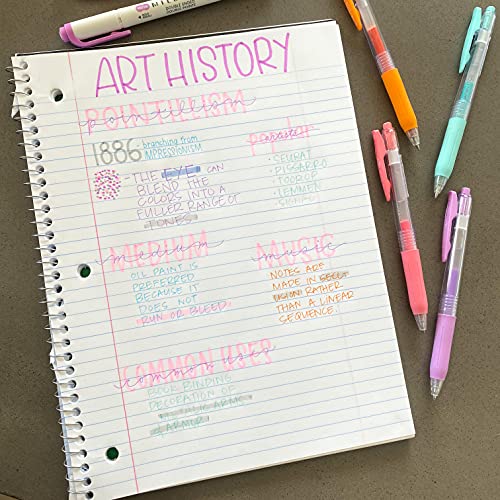 ART HISTORY
POINTILLISM
pointillism
1886 branching from
IMPRESSIONISM
THE EYE CAN
BLEND THE
COLORS INTO A
FULLER RANGE OF
TONES
· SEURAT
· PISSARRO
· TOOROP
· LEMMEN
· SIGNAC
MEDIUM
medium
OIL PAINT IS
PREFERRED
BECAUSE IT
DOES NOT
RUN OR BLEED.
MUSIC
music
NOTES ARE
MADE IN
RATHER
THAN A LINEAR
SEQUENCE.
COMMON USES
common uses
BOOK BINDING
DECORATION OF
METALLIC
ARMOR